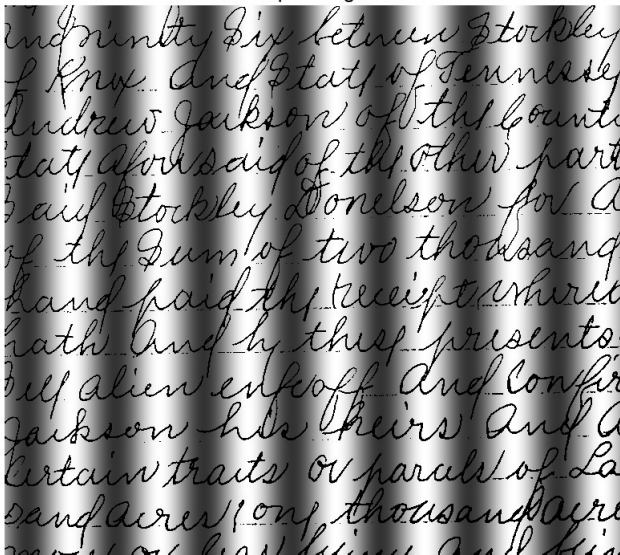 and ninety Six between Stockley
of Knox and State of Tennessee
Andrew Jackson of the Count
State aforesaid of the other part
Said Stockley Donelson for a
of the Sum of two thousand
hand paid the receipt where
hath and by these presents
Sell alien enfeoff and Confir
Jackson his heirs and a
Certain traits or parcels of La
sand acres one thousand acre
more or less lying and bein